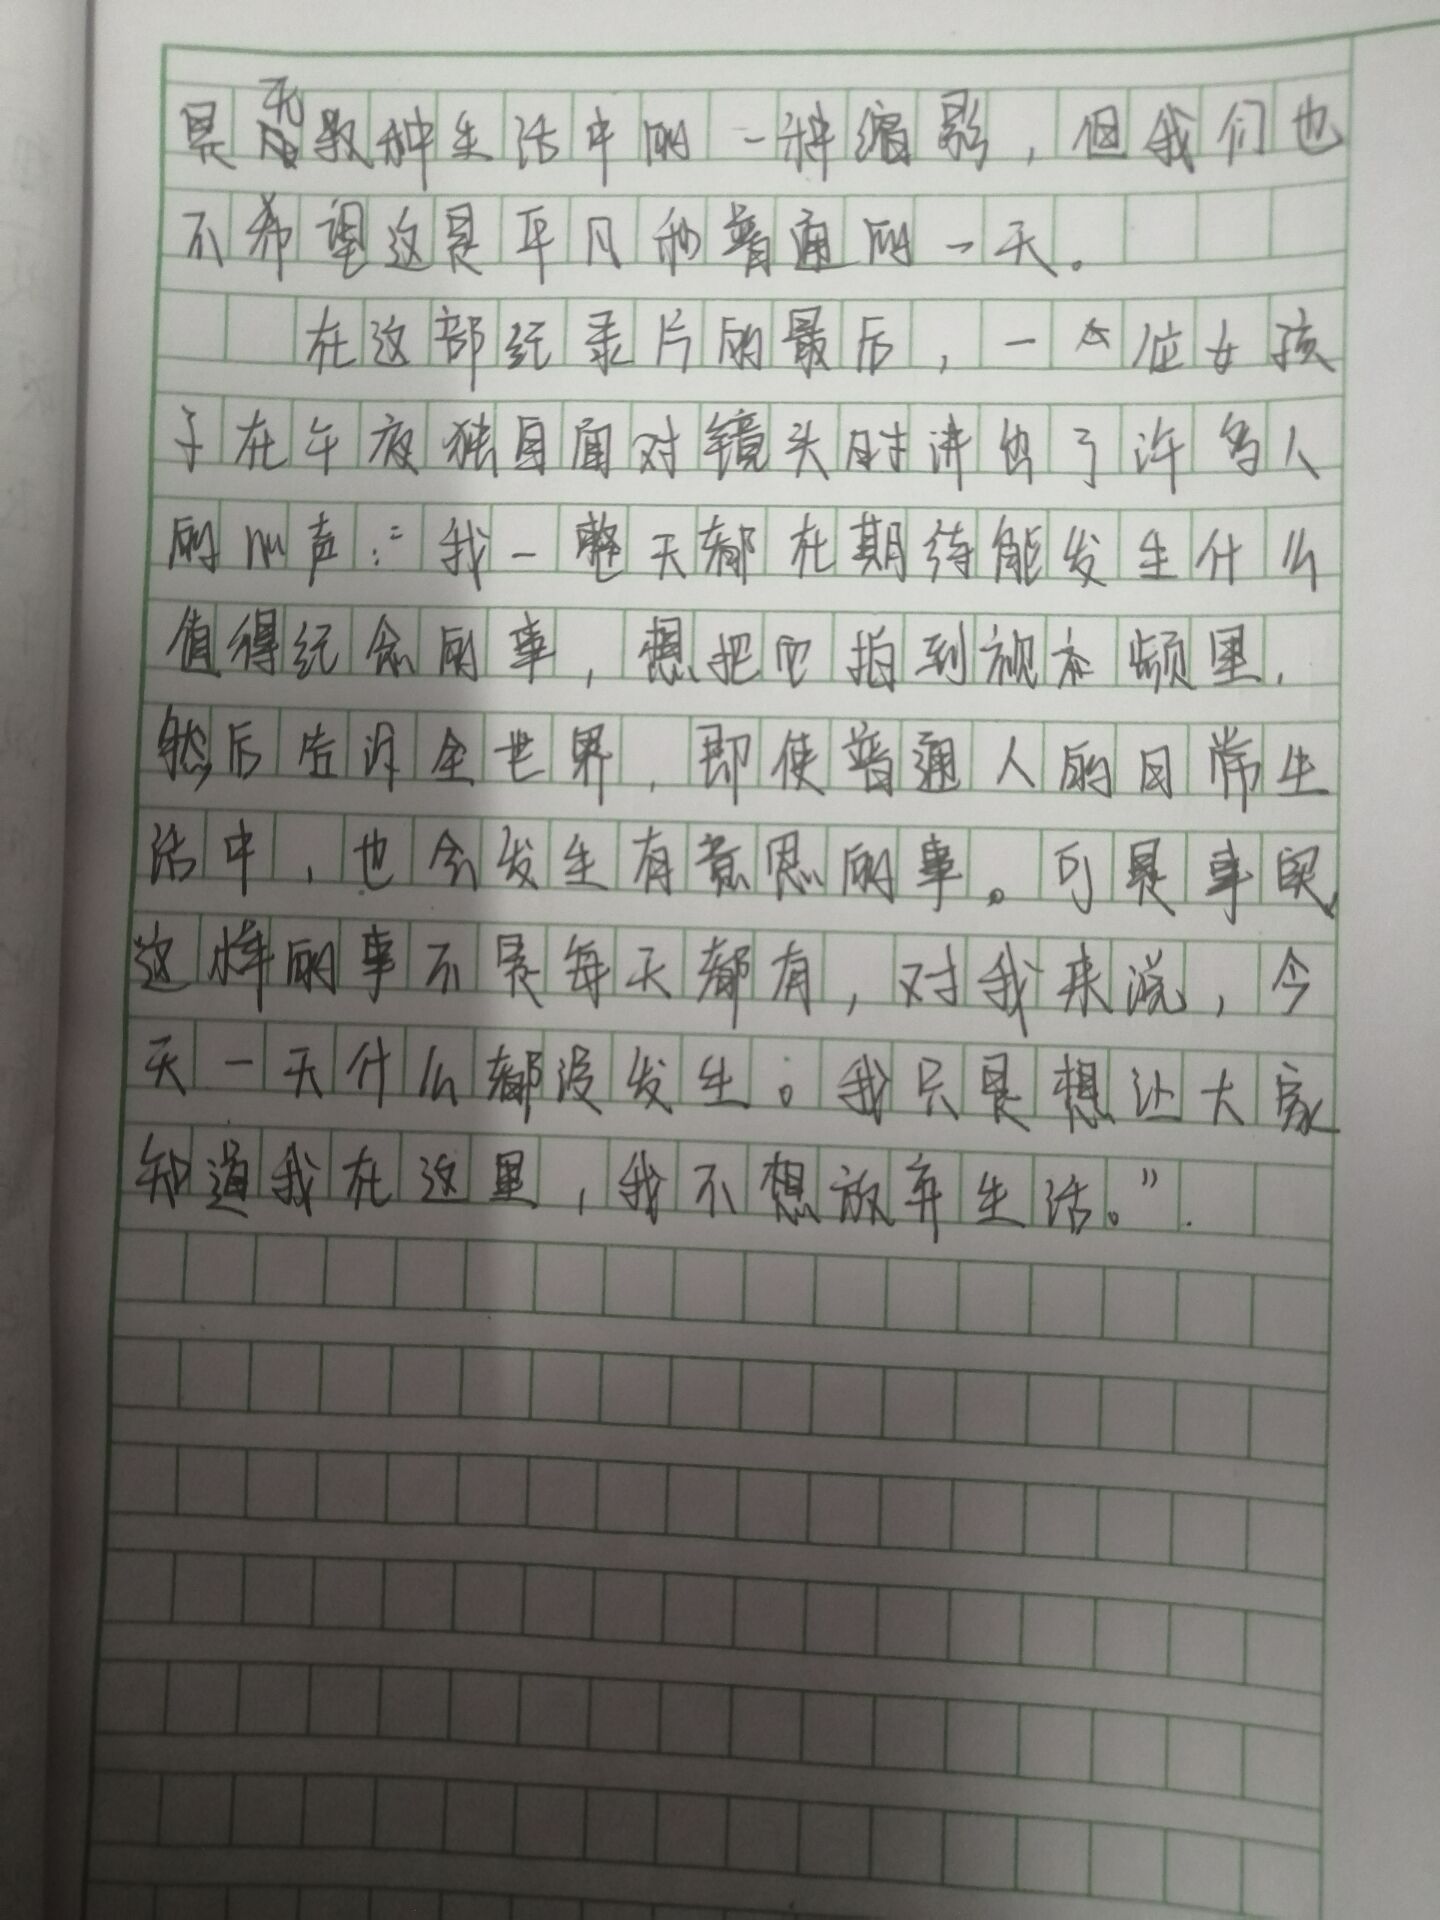 是无数种生活中的一种缩影，但我们也
不希望这是平凡和普通的一天。
在这部纪录片的最后，一位女孩
子在午夜独自面对镜头时讲出了许多人
的心声：“我一整天都在期待能发生什么
值得纪念的事，想把它拍到视频里，
然后告诉全世界，即使普通人的日常生
活中，也会发生有意思的事。可是事实，
这样的事不是每天都有，对我来说，今
天一天什么都没发生。我只是想让大家
知道我在这里，我不想放弃生活。”